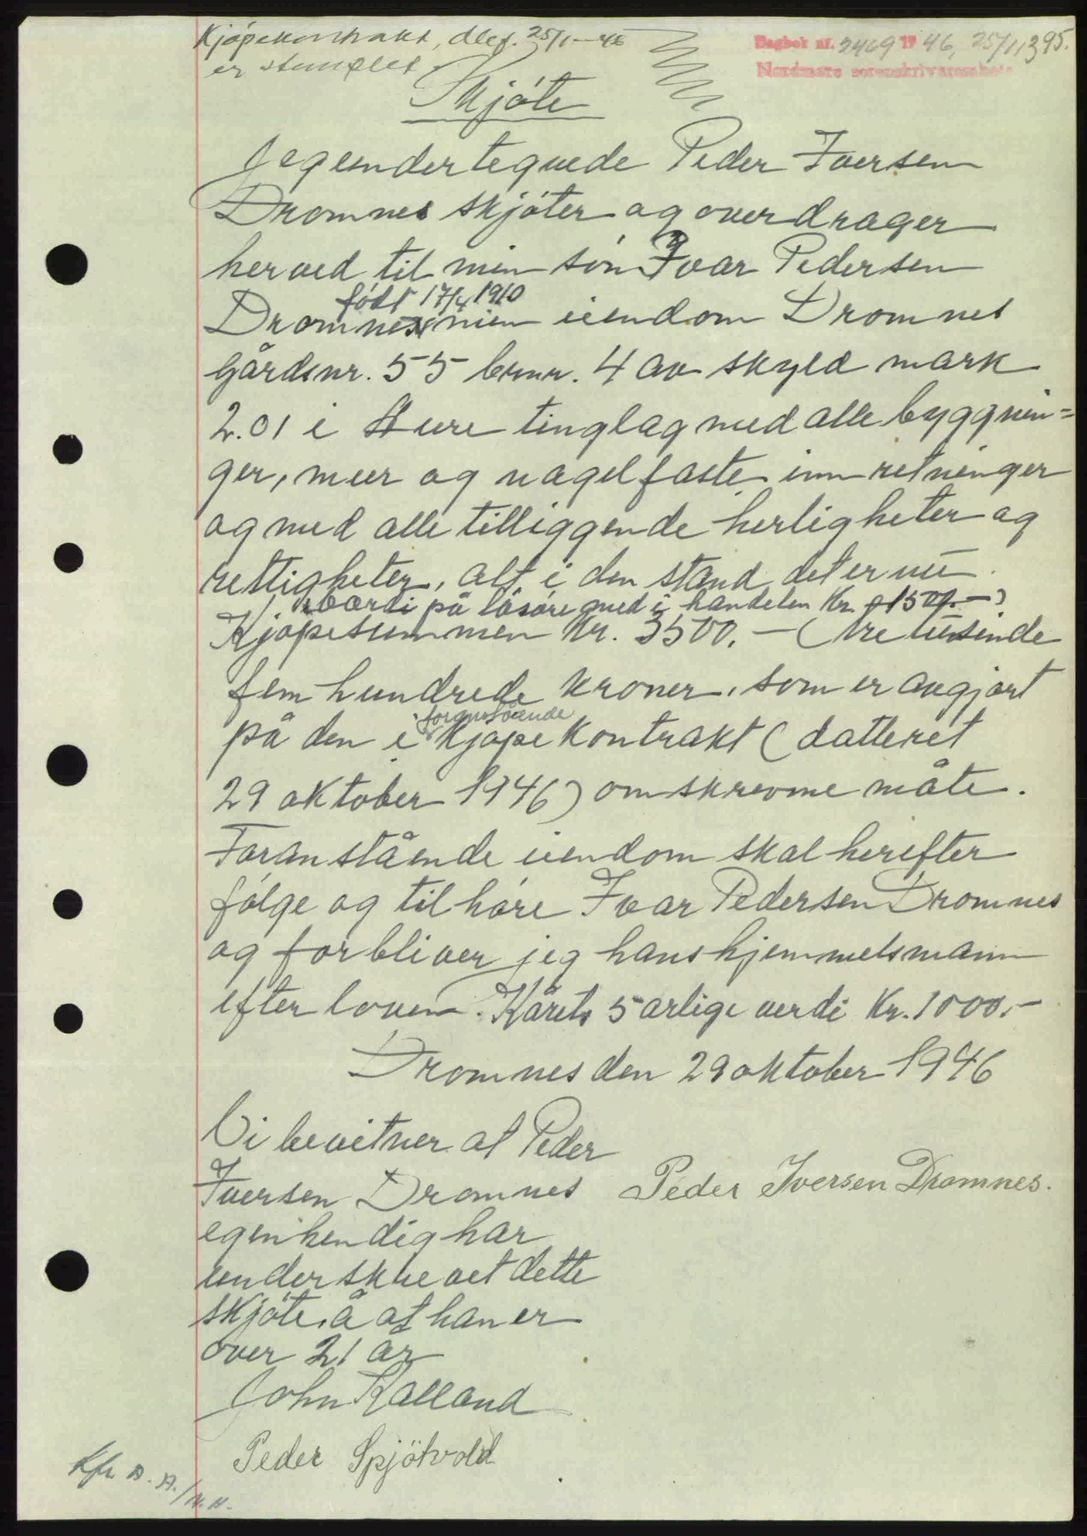 Kjøpekontrakt, dbef. 25/1-46
er stemplet
Dagbok nr. 2469 1946, 25/11 395.
Nordmøre sorenskriverembete
Skjöte
Jeg undertegnede Peder Iversen
Dromnes skjöter og overdrager
herved til min sön Ivar Pedersen
født 17/4 1910
Dromnes min eiendom Dromnes
Gårdsnr. 55 brnr. 4 av skyld mark
2.01 i Sture tinglag med alle byggnin=
ger, mur og nagelfaste innretninger
og med alle tilliggende herligheter og
rettigheter, alt i den stand det er nu.
værdi på lösöre med i handelen Kr. 1500.-)
Kjöpesummen Kr. 3500.- (tre tusinde
fem hundrede kroner, som er avgjort
foranstående
på den i kjöpekontrakt (datteret
29 oktober 1946) omskrevne måte.
Foranstående eiendom skal herefter
fölge og tilhöre Ivar Pedersen Dromnes
og forbliver jeg hans hjemmelsmann
efter loven. Kårets 5 årlige verdi Kr. 1000.-
Dromnes den 29 oktober 1946
Vi bevitner at Peder
Iversen Dromnes
Peder Iversen Dromnes.
egenhendig har
underskrevet dette
skjöte å at han er
over 21 år
John Kalland
Peder Spjötvold
Kfr